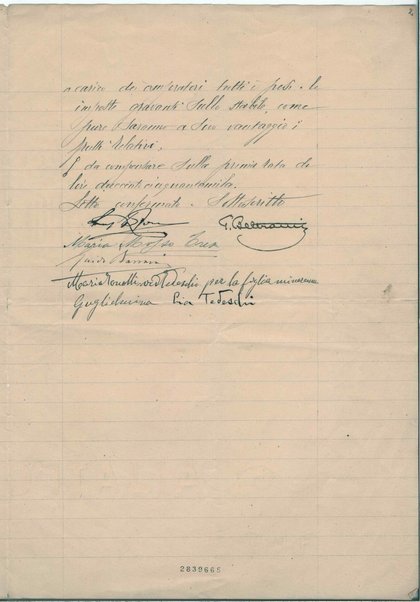 a carico dei compratori tutti i pesi e le
imposte gravanti sullo stabile come
pure saranno a loro vantaggio i
frutti relativi.
da compensare sulla prima rata di
lire duecentocinquantamila.
Letto confermato e Sottoscritto
G. Beltrami
Maria
Guido
Maria ved Tedeschi per la figlia minorenne
Guglielmina Pia Tedeschi
2839665